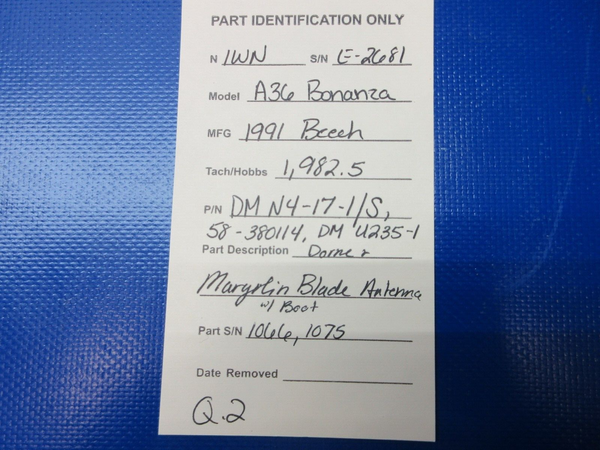 PART IDENTIFICATION ONLY
N 1WN S/N E-2681
Model A36 Bonanza
MFG 1991 Beech
Tach/Hobbs 1,982.5
P/N DM N4-17-1/S,
58-380114, DM U235-1
Part Description Dorne &
Margolin Blade Antenna
w/ Boot
Part S/N 1066, 1075
Date Removed
Q.2